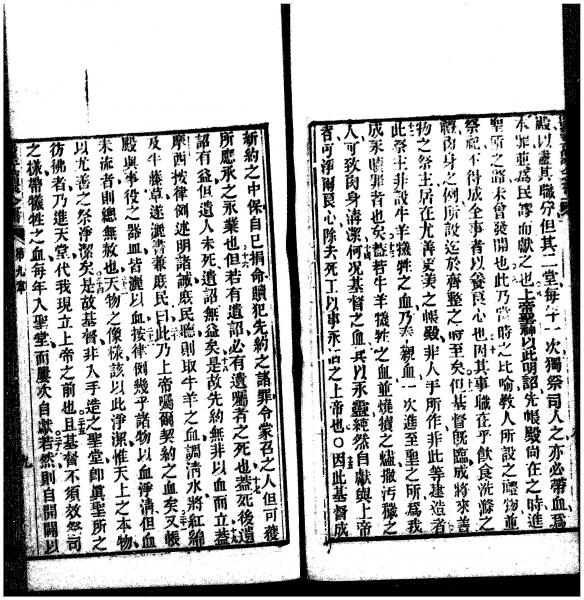 殿以盡其職分但其二堂每年一次獨祭司人之亦必帶血爲
本罪並爲民謬而獻之也上帝聖神以此明認先帳殿尚在之時進
聖所之路未曾發開也此乃當時之比喻教人所設之禮物並
祭祀不得成全事者以養良心也因其事職在乎飲食洗滌之
體肉身之例所設迄於齊整之時至矣但基督旣臨成將來善
物之祭主居在尤善更美之帳殿非人手所作非此等建造者
此祭主非設牛羊犧牲之血乃奉親血一次進至聖之所爲我
成永贖罪者也矣葢若牛羊犧牲之血並燒犢之燼撒汚穢之
人可致肉身清潔何况基督之血以永靈純然自獻與上帝
者可淨爾良心除去死工以事永活之上帝也○因此基督成
新約之中保自己捐命贖犯先約之諸罪令蒙召之人但可獲
所應承之永業也但若有遺詔必有遺囑者之死也葢死後遺
詔有益但遺人未死遺詔無益矣是故先約無非以血而立葢
摩西按律例述明諸誡庶民聽則取牛羊之血調清水將紅綿
及牛藤草遂灑書兼庶民曰此乃上帝囑爾契約之血矣又帳
殿與事役之器血皆灑以血按律例幾乎諸物以血淨清但血
未流者則總無赦也天物之像樣該以此淨潔惟天上之本物
以尤善之祭淨潔矣是故基督非入手造之聖堂卽眞聖所之
彷彿者乃進天堂代我現立上帝之前也且基督不須效祭司
之樣帶犧牲之血每年入聖堂而屢次自獻若然則自開闢以
第九章